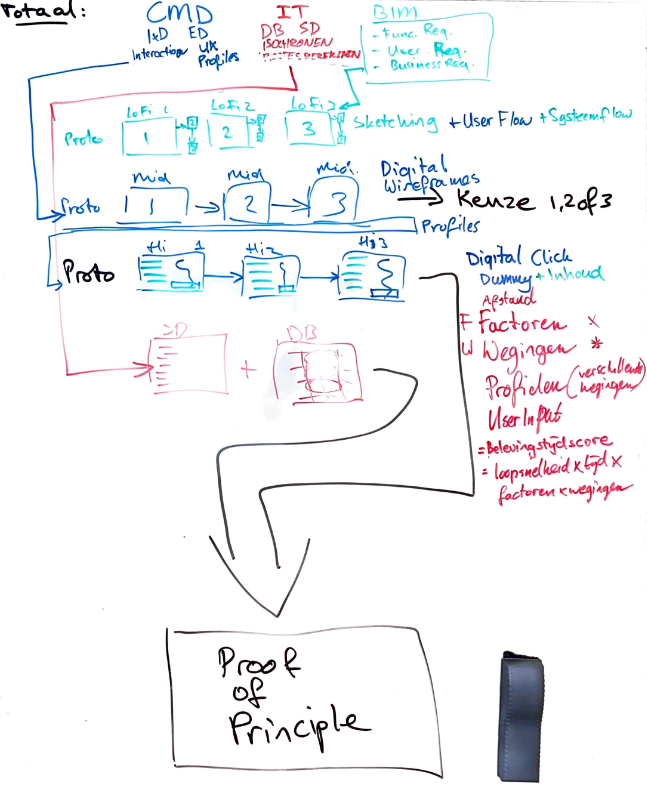 Totaal:
CMD
IxD ED
Interaction UX
Profiles
IT
DB SD
ISOCHRONEN
BIM
- Func. Req.
- User Req.
- Business Req.
LoFi 1
LoFi 2
LoFi 3
Proto
1
2
3
Sketching + User Flow + Systeemflow
Mid
Mid
Mid
Digital
Wireframes
Proto
1
2
3
Keuze 1,2 of 3
Profiles
Hi 1
Hi 2
Hi 3
Proto
Digital Click
Dummy + Inhoud
Afstand
F Factoren x
W Wegingen *
Profielen (verschillende
wegingen)
User Input
= Belevingstijdscore
= loopsnelheid x tijd x
factoren x wegingen
SD
+
DB
Proof
of
Principle